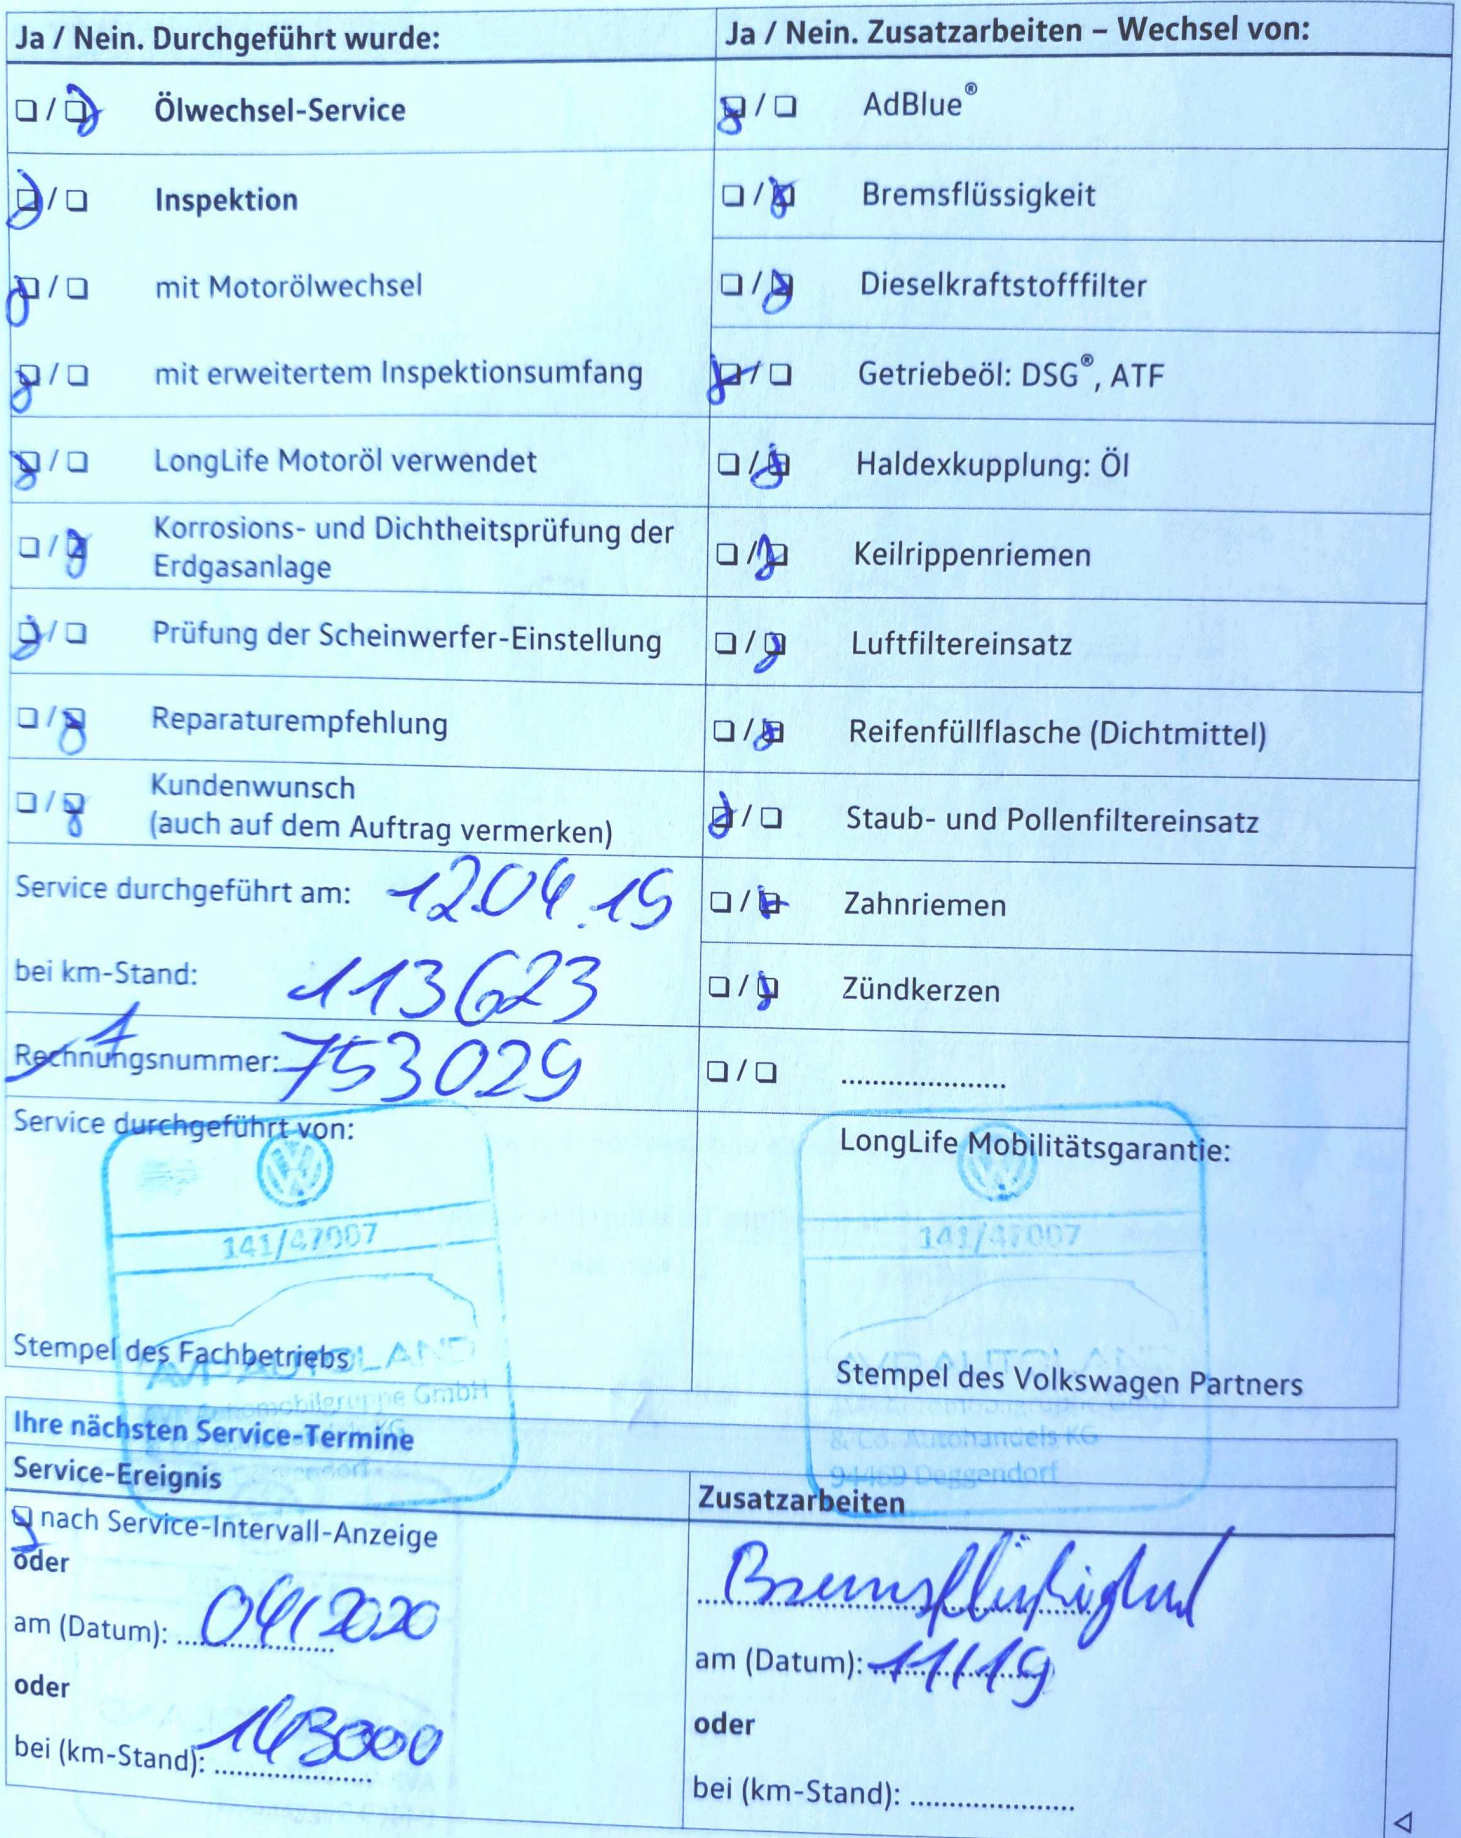 Ja / Nein. Durchgeführt wurde:
❏ / ❏ Ölwechsel-Service
❏ / ❏ Inspektion
❏ / ❏ mit Motorölwechsel
❏ / ❏ mit erweitertem Inspektionsumfang
❏ / ❏ LongLife Motoröl verwendet
❏ / ❏ Korrosions- und Dichtheitsprüfung der
Erdgasanlage
❏ / ❏ Prüfung der Scheinwerfer-Einstellung
❏ / ❏ Reparaturempfehlung
❏ / ❏ Kundenwunsch
(auch auf dem Auftrag vermerken)
Service durchgeführt am: 12.04.19
bei km-Stand: 113623
Rechnungsnummer: 753029
Service durchgeführt von:
141/47007
Stempel des Fachbetriebs
AVP AUTOLAND
AVP Automobilgruppe GmbH
Ja / Nein. Zusatzarbeiten – Wechsel von:
❏ / ❏ AdBlue®
❏ / ❏ Bremsflüssigkeit
❏ / ❏ Dieselkraftstofffilter
❏ / ❏ Getriebeöl: DSG®, ATF
❏ / ❏ Haldexkupplung: Öl
❏ / ❏ Keilrippenriemen
❏ / ❏ Luftfiltereinsatz
❏ / ❏ Reifenfüllflasche (Dichtmittel)
❏ / ❏ Staub- und Pollenfiltereinsatz
❏ / ❏ Zahnriemen
❏ / ❏ Zündkerzen
❏ / ❏ .....................
LongLife Mobilitätsgarantie:
141/47007
AVP AUTOLAND
Stempel des Volkswagen Partners
AVP Automobilgruppe GmbH
& Co. Autohandels KG
94469 Deggendorf
Ihre nächsten Service-Termine
Service-Ereignis
❏ nach Service-Intervall-Anzeige
oder
am (Datum): 04/2020
oder
bei (km-Stand): 143000
Zusatzarbeiten
Bremsflüßigkeit
am (Datum): 11/19
oder
bei (km-Stand): .....................